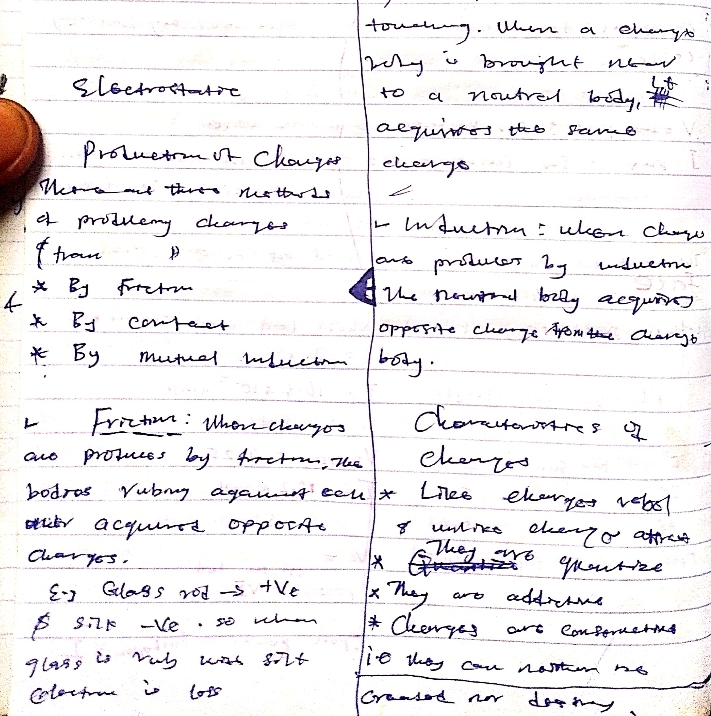 Electrostatic
Production of Charges
There are three methods
of producing charges
(from
* By Friction
* By contact
* By mutual Induction
Friction: When charges
are produces by friction, the
bodies rubing against each
other acquired opposite
charges.
E.g Glass rod → +Ve
& silk -Ve. so when
glass is rub with silk
electron is loss
touching. When a charge
body is brought near
to a neutral body, it
acquires the same
charge
Induction: when charges
are produces by induction
The neutral body acquires
opposite charge from the charge
body.
Characteristics of
charges
* Like charges rebel
& unlike charge attract
* They are quantize
* They are additive
* Charges are conservative
i.e they can neither be
created nor destroy.